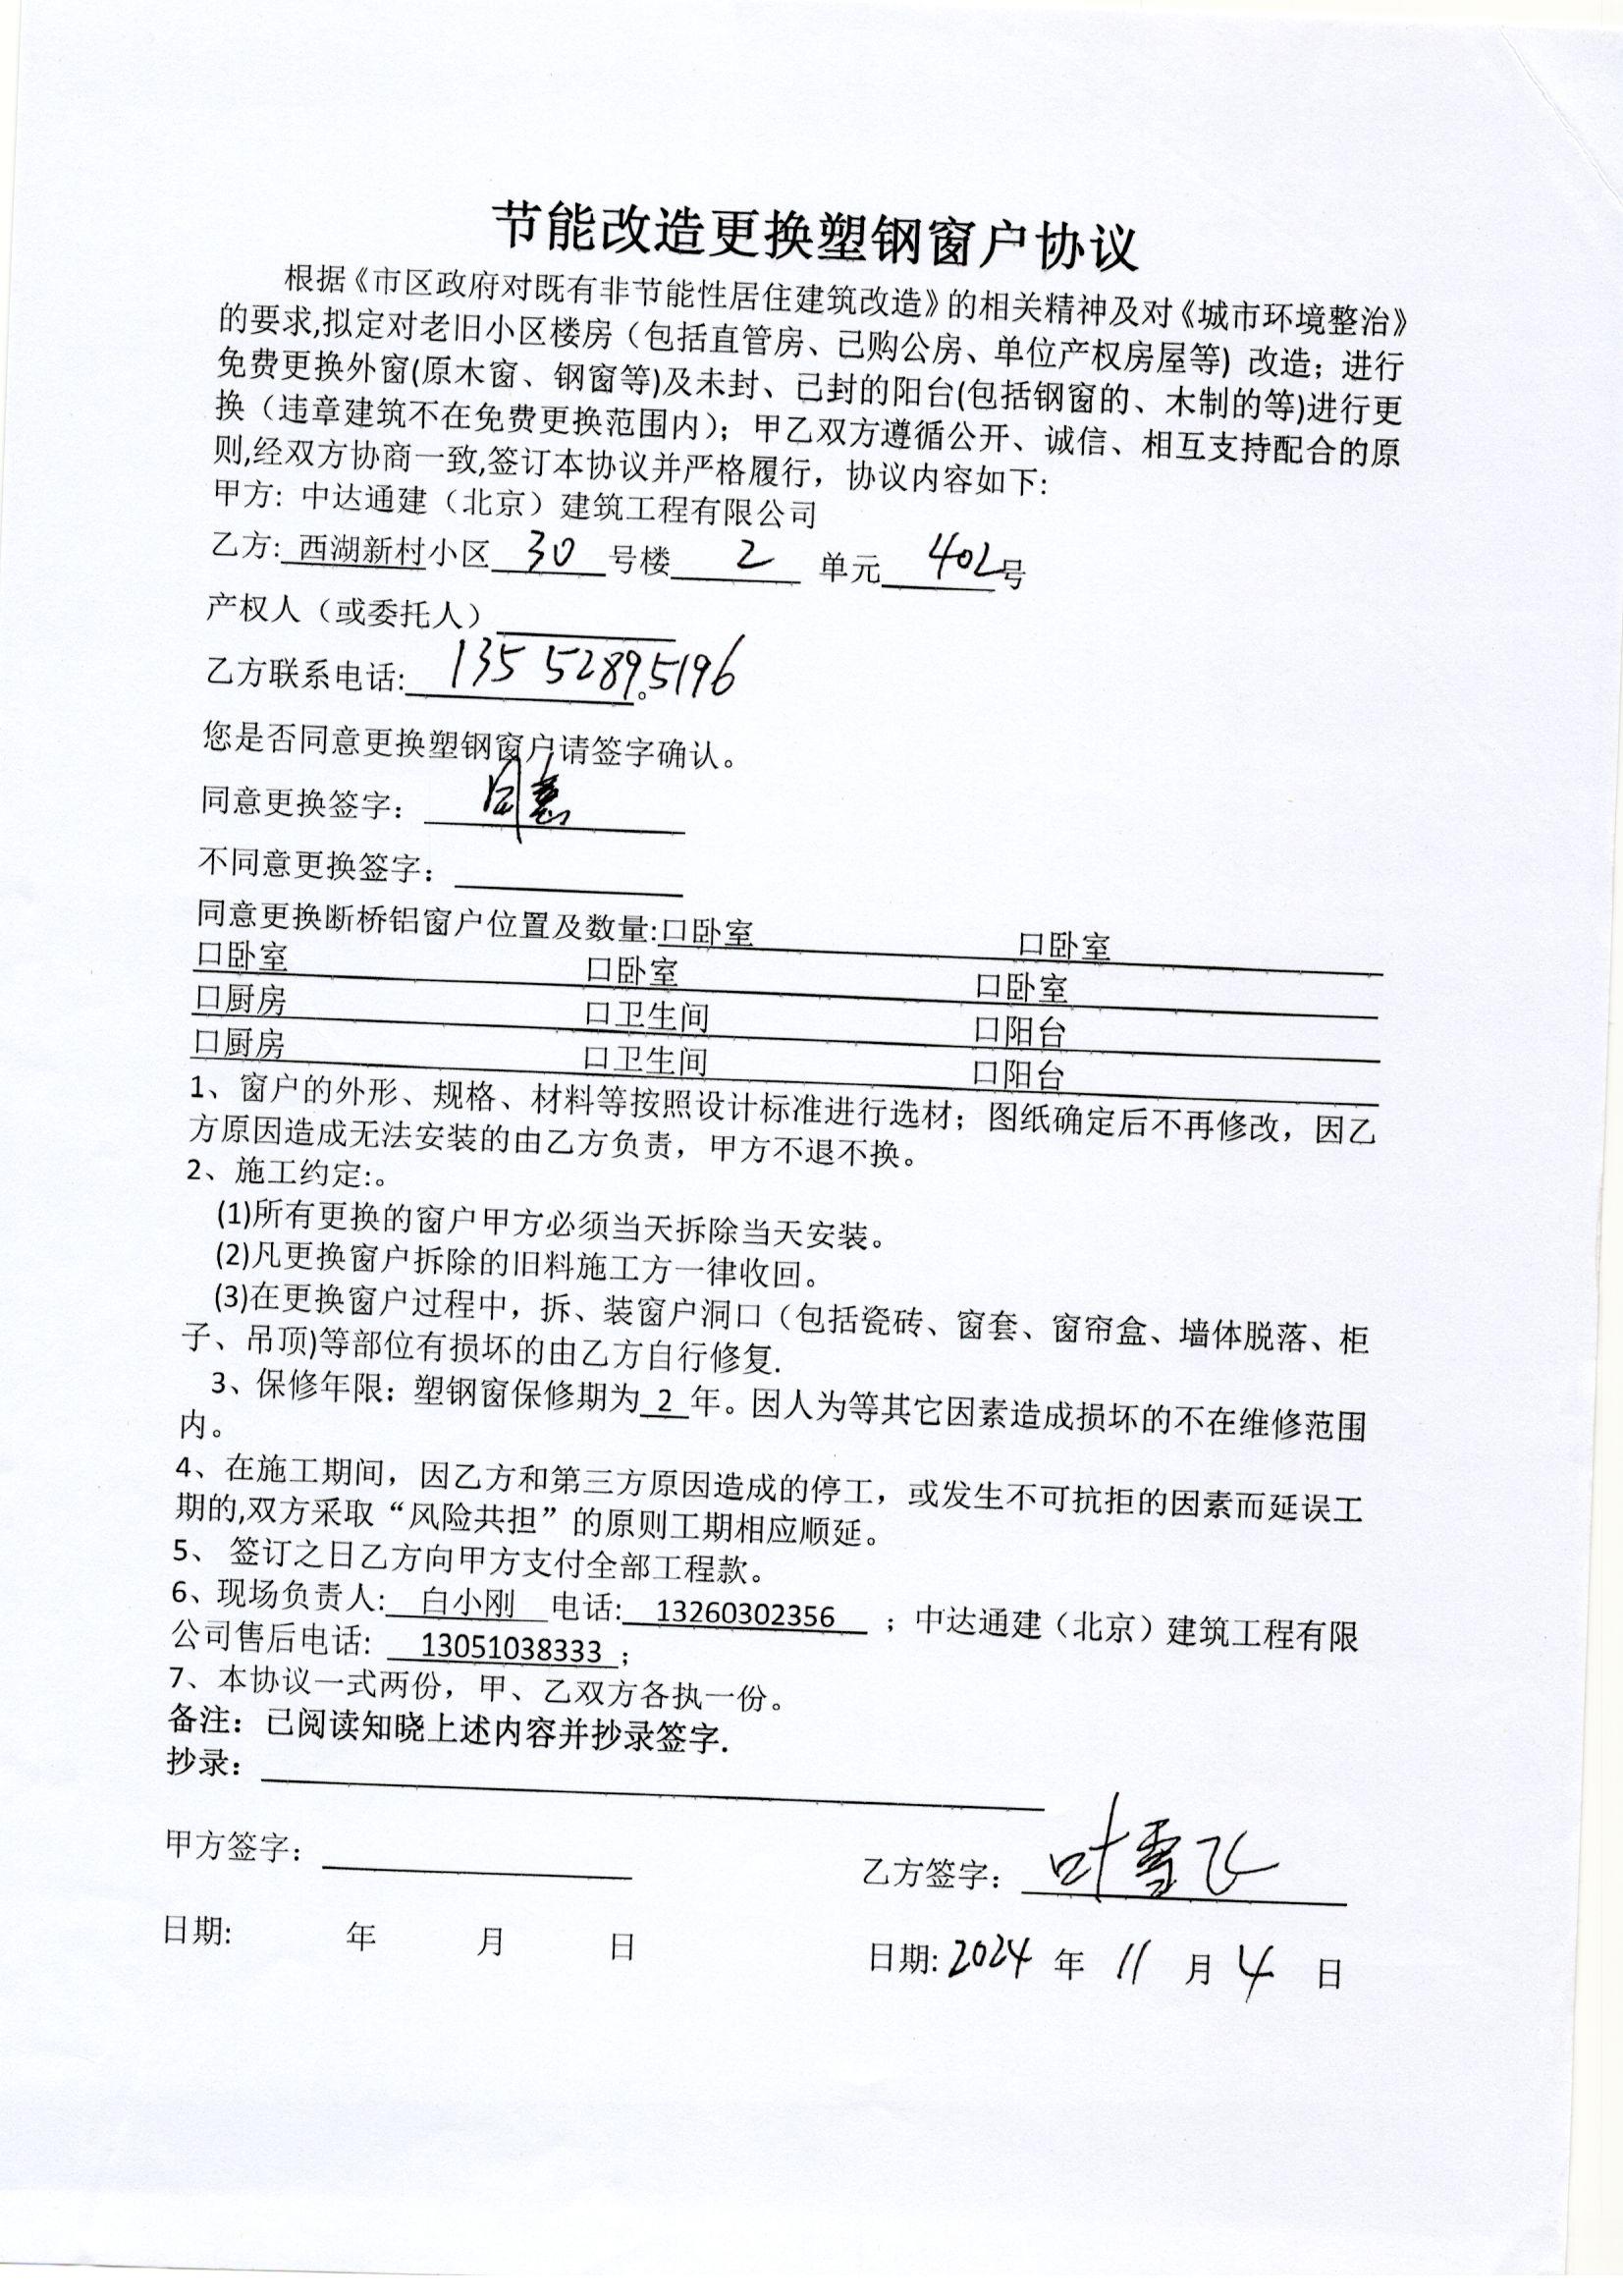 节能改造更换塑钢窗户协议
根据《市区政府对既有非节能性居住建筑改造》的相关精神及对《城市环境整治》
的要求,拟定对老旧小区楼房（包括直管房、已购公房、单位产权房屋等）改造；进行
免费更换外窗(原木窗、钢窗等)及未封、已封的阳台(包括钢窗的、木制的等)进行更
换（违章建筑不在免费更换范围内）；甲乙双方遵循公开、诚信、相互支持配合的原
则,经双方协商一致,签订本协议并严格履行，协议内容如下:
甲方: 中达通建（北京）建筑工程有限公司
乙方: 西湖新村小区 30 号楼 2 单元 402号
产权人（或委托人）
乙方联系电话: 135 5289 5196。
您是否同意更换塑钢窗户请签字确认。
同意更换签字： 同意
不同意更换签字：
同意更换断桥铝窗户位置及数量:口卧室 口卧室
口卧室 口卧室 口卧室
口厨房 口卫生间 口阳台
口厨房 口卫生间 口阳台
1、窗户的外形、规格、材料等按照设计标准进行选材；图纸确定后不再修改，因乙
方原因造成无法安装的由乙方负责，甲方不退不换。
2、施工约定:。
(1)所有更换的窗户甲方必须当天拆除当天安装。
(2)凡更换窗户拆除的旧料施工方一律收回。
(3)在更换窗户过程中，拆、装窗户洞口（包括瓷砖、窗套、窗帘盒、墙体脱落、柜
子、吊顶)等部位有损坏的由乙方自行修复.
3、保修年限：塑钢窗保修期为 2 年。因人为等其它因素造成损坏的不在维修范围
内。
4、在施工期间，因乙方和第三方原因造成的停工，或发生不可抗拒的因素而延误工
期的,双方采取“风险共担”的原则工期相应顺延。
5、 签订之日乙方向甲方支付全部工程款。
6、现场负责人: 白小刚 电话: 13260302356 ；中达通建（北京）建筑工程有限
公司售后电话: 13051038333 ；
7、本协议一式两份，甲、乙双方各执一份。
备注：已阅读知晓上述内容并抄录签字.
抄录：
甲方签字： 乙方签字： 叶雪飞
日期: 年 月 日 日期: 2024 年 11 月 4 日